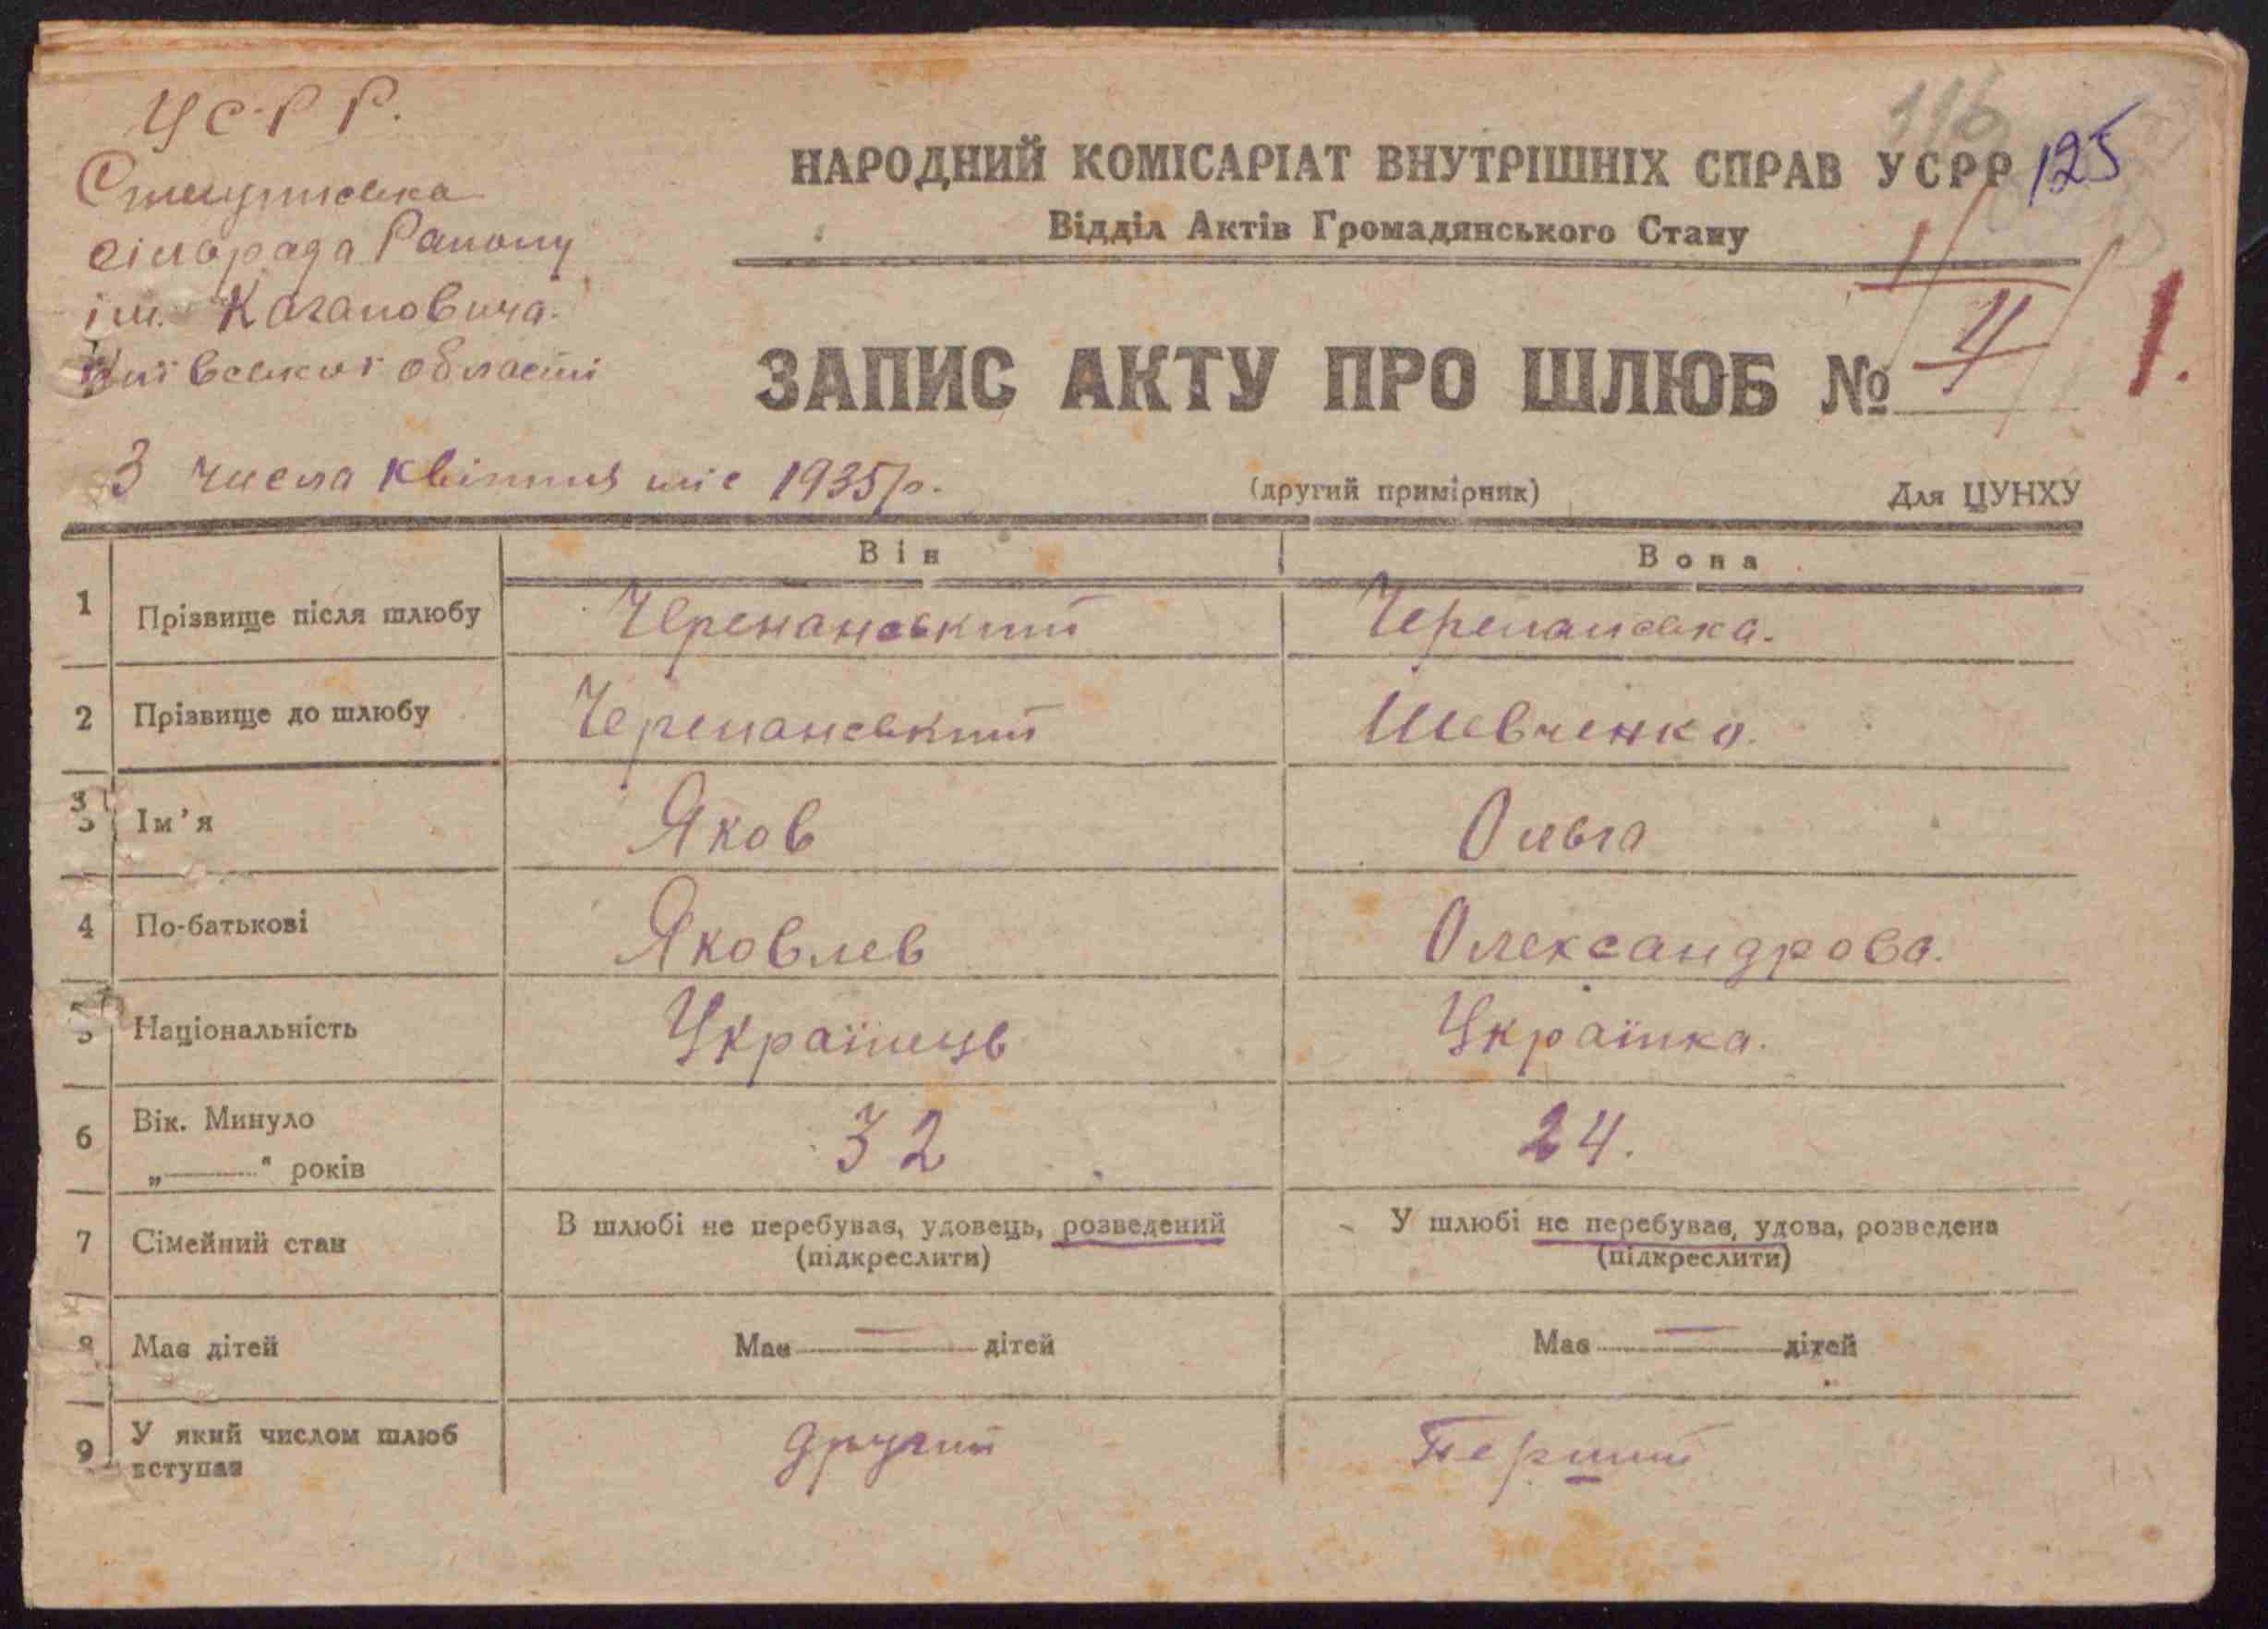 УСРР.
сільрада Району
ім. Кагановича
Київської області
116
125
НАРОДНИЙ КОМІСАРІАТ ВНУТРІШНІХ СПРАВ УСРР
Відділ Актів Громадянського Стану
1
ЗАПИС АКТУ ПРО ШЛЮБ № 4
1.
3 числа квітня міс 1935 р.
(другий примірник)
Для ЦУНХУ
Він
Вона
1 Прізвище після шлюбу Черепанський Черепанська.
2 Прізвище до шлюбу Черепанський Шевченко.
3 Ім'я Яков Ольга
4 По-батькові Яковлев Олександрова.
5 Національність Українець Українка.
6 Вік. Минуло
„ “ років 32 24.
7 Сімейний стан В шлюбі не перебував, удовець, розведений У шлюбі не перебував, удова, розведена
(підкреслити) (підкреслити)
8 Має дітей Має — дітей Має — дітей
9 У який числом шлюб
вступав другий Перший